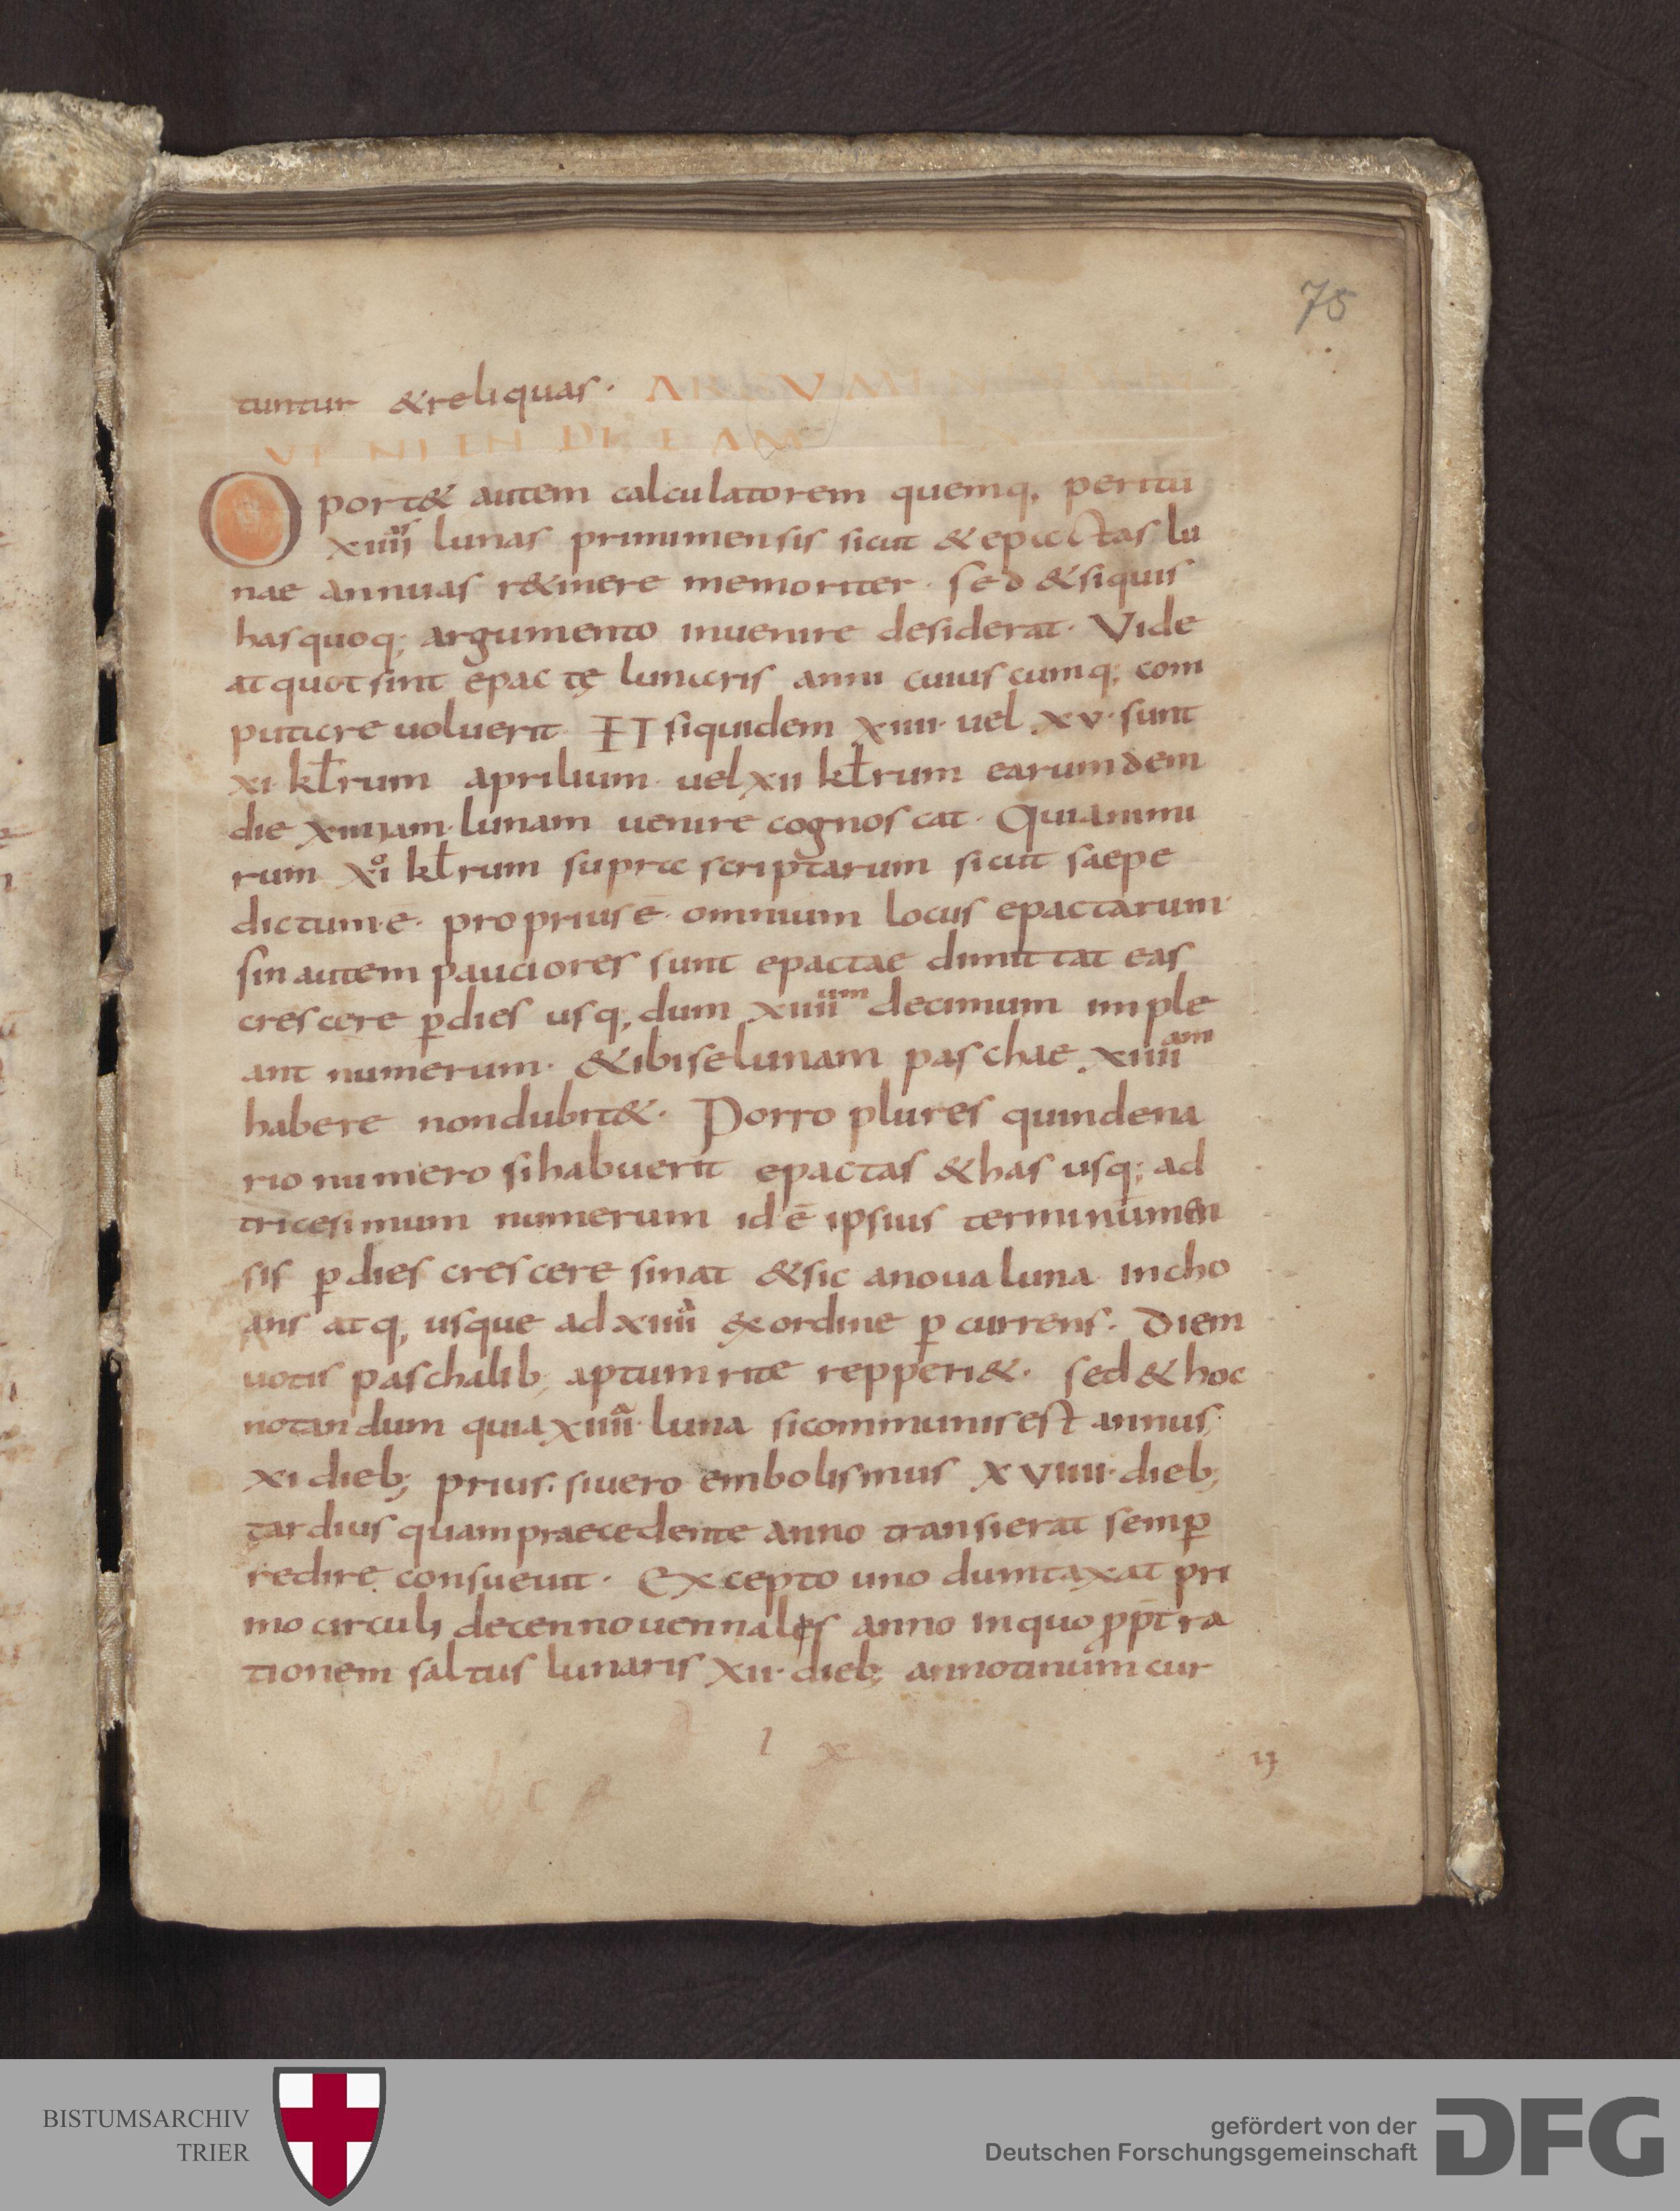 75
tuntur &reliquas·
Oport& autem calculatorem quemq, peritū
xiiiias lunas primimensis sicut &epactas lu
nae annuas r&inere memoriter· sed &siquis
hasquoq; argumento inuenire desiderat· Vide
atquotsint epactę lunaris anni cuiuscumq; com
putare uoluerit· ET siquidem xiiii· uel xv· sunt
xi· kłrum aprilium· uel xii kłrum earumdem
die xiiiiam· lunam uenire cognoscat· Quianimi
rum xıͦ kłrum supra scriptarum sicut saepe
dictum·ē· propriusē· omnium locus epactarum·
sin autem pauciores sunt epactae dimittat eas
crescere ꝑdies usq, dum xiiiium decimum imple
ant numerum· &ibiselunam paschae xiiiiam
habere nondubit&· Porro plures quindena
rio numero sihabuerit epactas &has usq; ad
tricesimum numerum id ē ipsius terminūmen
sis ꝑdies crescere sinat &sic anoualuna incho
ans atq, usque ad xiiii &xordine ꝑ currens· Diem
uotis paschalib; aptum rite repperi&· sed & hoc
notandum quia xiiii· luna sicommunisest annus·
xi dieb; prius· siuero embolismus xviiii· dieb;
tardius quampraecedente anno transierat semꝑ
redire consueuit· Excepto uno dumtaxat pri
mo circuli decennouennales anno inquo ꝓpt ra
tionem saltus lunaris xii· dieb; annotinum cur
l x
BISTUMSARCHIV
TRIER
gefördert von der
Deutschen Forschungsgemeinschaft
DFG